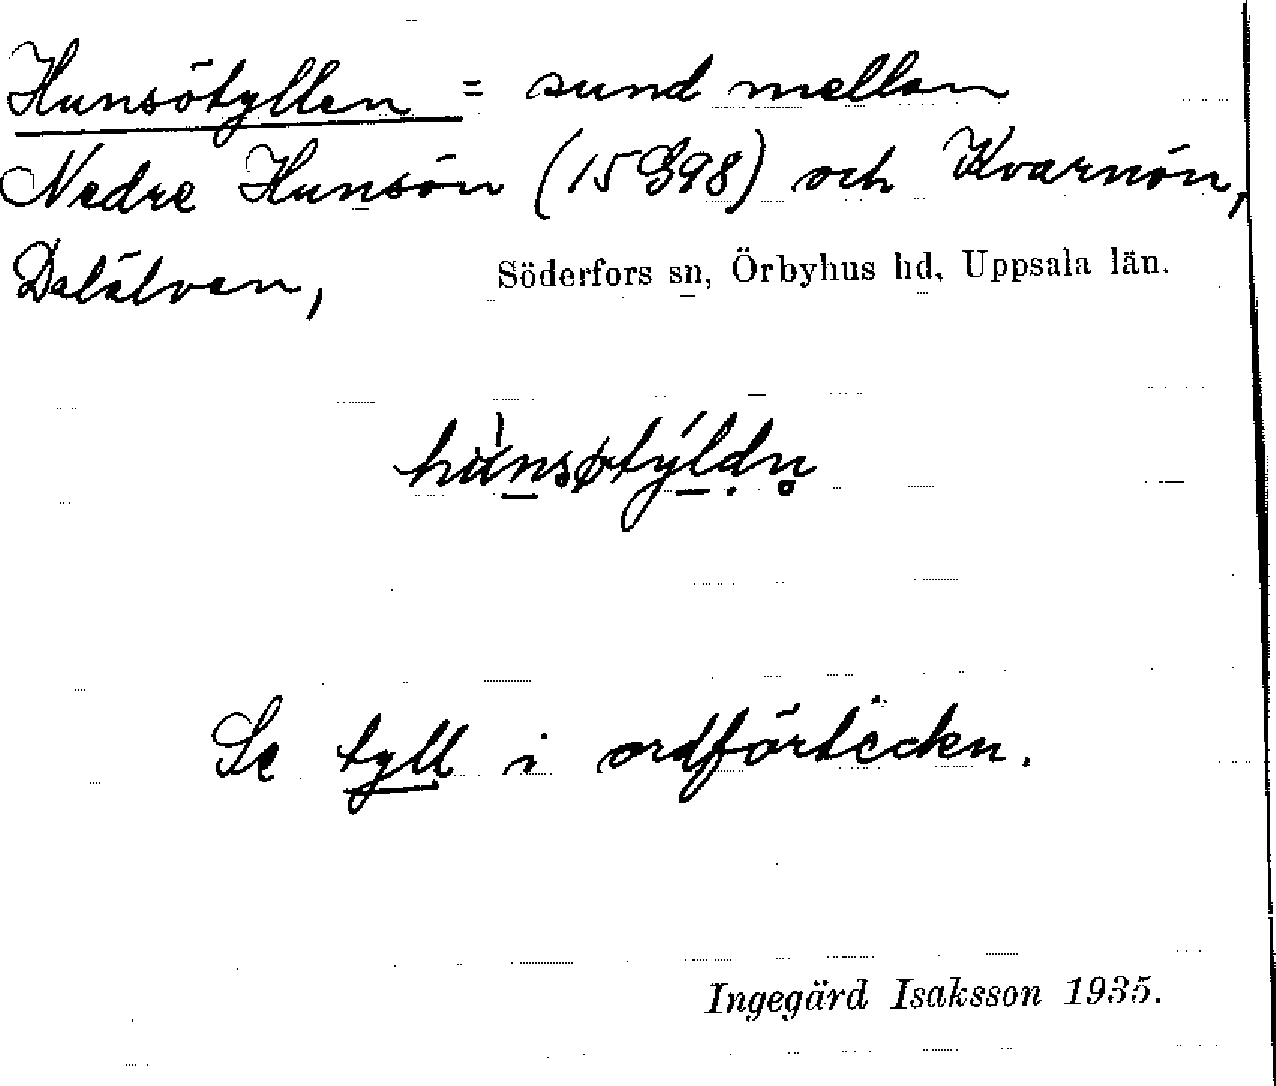 Hunsötyllen = sund mellan
Nedre Hunsön (15 G98) och Kvarnön,
Dalälven, Söderfors sn, Örbyhus hd, Uppsala län.
Se tyll i ordförteckn.
Ingegärd Isaksson 1935.